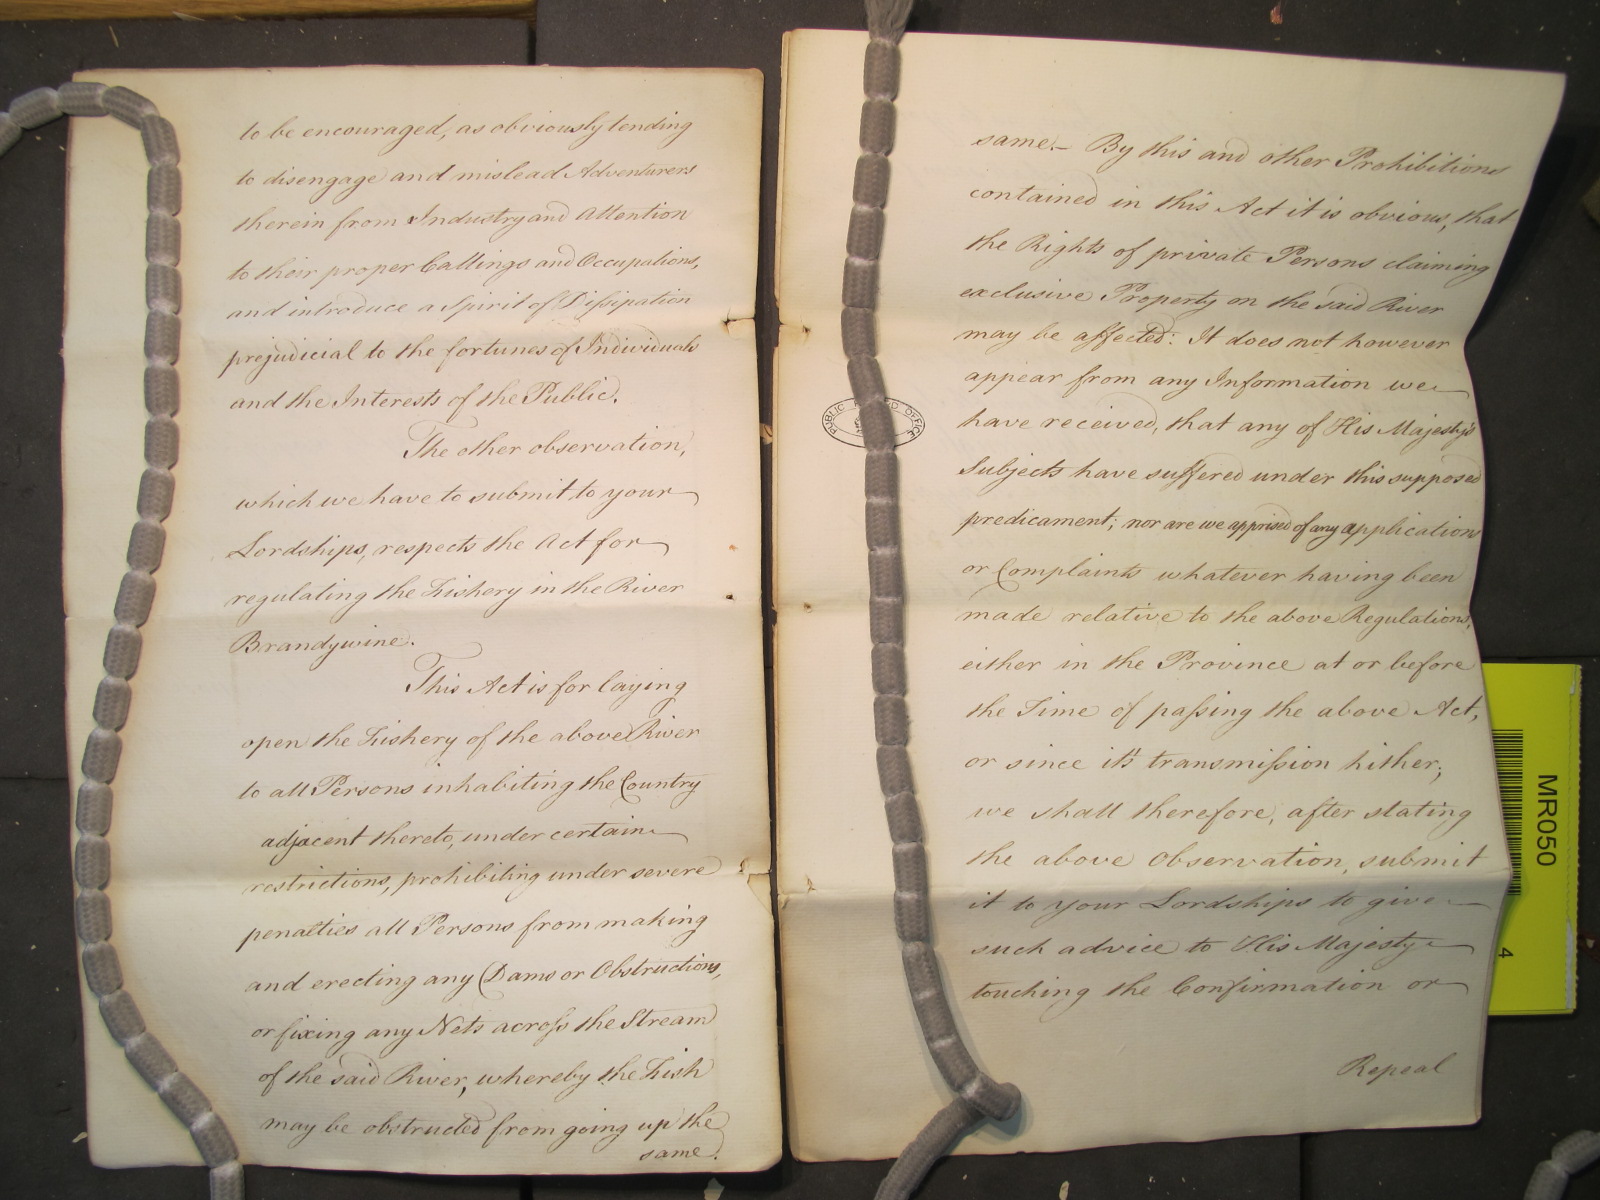 to be encouraged, as obviously tending
to disengage and mislead Adventurers
therein from Industry and Attention
to their proper Callings and Occupations,
and introduce a Spirit of Dissipation
prejudicial to the fortunes of Individuals
and the Interests of the Public.
The other observation,
which we have to submit to your
Lordships, respects the Act for
regulating the Fishery in the River
Brandywine.
This Act is for laying
open the Fishery of the above River
to all Persons inhabiting the Country
adjacent thereto, under certain
restrictions, prohibiting under severe
penalties all Persons from making
and erecting any Dams or Obstructions,
or fixing any Nets across the Stream
of the said River, whereby the Fish
may be obstructed from going up the
same.
same.– By this and other Prohibitions
contained in this Act it is obvious, that
the Rights of private Persons claiming
exclusive Property on the said River
may be affected: It does not however
appear from any Information we
have received, that any of His Majesty's
Subjects have suffered under this supposed
predicament; nor are we apprised of any application
or Complaints whatever having been
made relative to the above Regulations,
either in the Province at or before
the Time of passing the above Act,
or since it's transmission hither;
we shall therefore, after stating
the above Observation, submit
it to your Lordships to give
such advice to His Majesty
touching the Confirmation or
Repeal
PUBLIC OFFICE
MR050
4